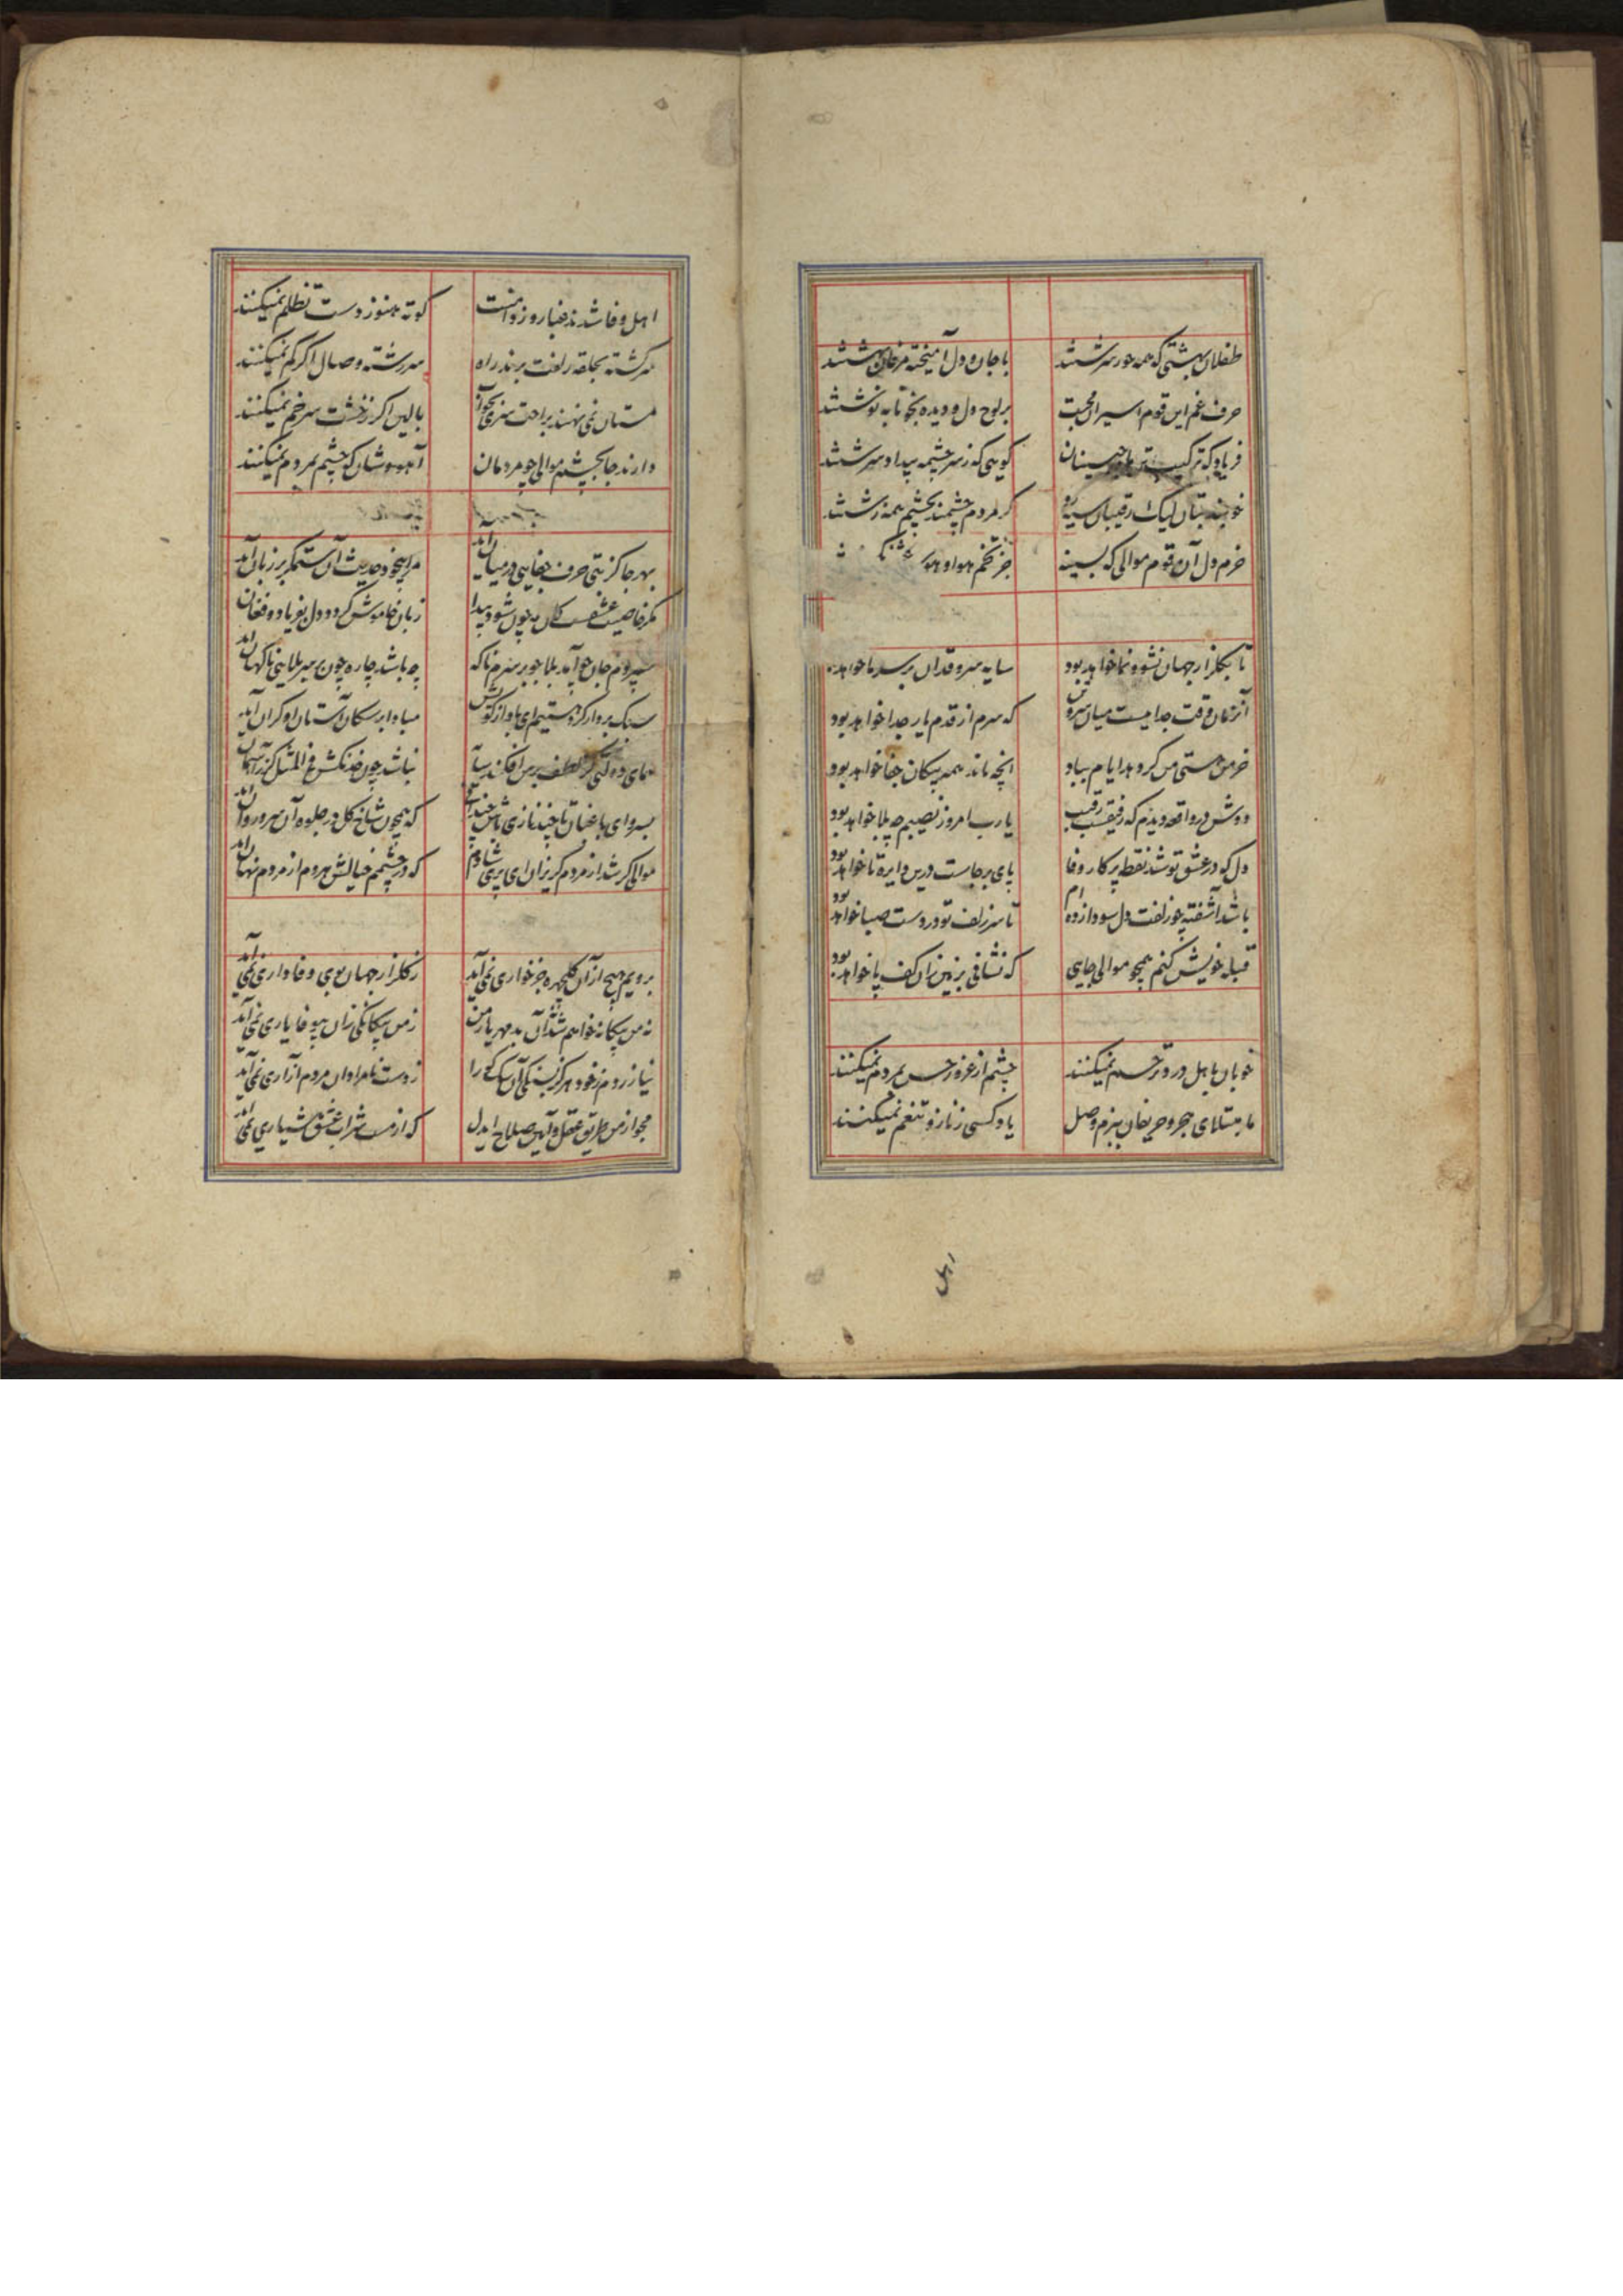 طفلان بهشتی که همه حور سرشتند با جان و دل آمیخته مرغان بهشتند
حرف غم این قوم اسیران محبت بر لوح دل و دیده بخونابه نوشتند
فریاد که ترکیب جبینان کویی که ز سرچشمه بیداد سرشتند
خوبند بتان لیک رقیبان سیه رو کر مردم چشمند بچشم همه زشتند
خرم دل آن قوم موالی که بسینه جز تخم هوا و هوس نکشتند
تا بکلزار جهان نشو و نما خواهد بود سایه سرو قدان بر سر ما خواهد
آنزمان وقت جداییست میان من و که سرم از قدم یار جدا خواهد بود
خرمن هستی من کر دهد ایام بباد انچه ماند همه پیکان جفا خواهد بود
دوش در واقعه دیدم که رفیقست رقیب یارب امروز نصیبم چه بلا خواهد بود
دل که در عشق تو شد نقطه پرکار وفا پای برجاست درین دایره تا خواهد بود
باشد آشفته چو زلفت دل سودازده ام تا سر زلف تو در دست صبا خواهد بود
قبله خویش کنم همچو موالی جایی که نشانی بزمین زان کف پا خواهد بود
خوبان باهل درد ترحم نمیکنند چشم از غرور حسن بمردم نمیکنند
ما مبتلای هجر و حریفان ببزم وصل یاد کسی ز ناز و تنعم نمیکنند
اهل
اهل وفا شدند غبار و ز دامنت کوته هنوز دست تظلم نمیکنند
سرکشته بحلقه زلفت برند راه سررشته وصال اکر کم نمیکنند
مستان نمی نهند براحت سری بخواب بالین اکر ز خشت سر خم نمیکنند
دارند جا بچشم موالی چو مردمان آهووشان که چشم بمردم نمیکنند
بهر جا کز بتی حرف جفایی در میان آید مرا بیخود حدیث آن ستمکر بر زبان آید
مکر خاصیت عشقست کان مه چون شود پیدا زبان خاموش کردد دل بفریاد و فغان
سپردم جان چو آمد بلاجو بر سرم ناکه چه باشد چاره چون بر سر بلایی ناکهان آید
سبک بردار کردستیم ای باد از کویش مبادا بر سکان آستان او کران آید
همای ده کهی کر لطف بر من افکند سایه نباشد چون خدنکش فی المثل کز آسمان
برو ای باغبان تا چند نازی که همچون شاخ کل در جلوه آن سرو روان آید
موالی کر شد از مردم کریزان ای پری شادم که در چشمم خیالش هردم از مردم نهان آید
برویم هیچ از آن کلچهره جز خواری نمی آید ز کلزار جهان بوی وفاداری نمی آید
نه من بیکانه خواهم شد نه آن بدمهر یار من ز من بیکانکی زان بیوفا یاری نمی آید
نیازردم ز خود هرکز سکی را ز دست نامرادان مردم آزاری نمی آید
مجو از من طریق عقل و آیین صلاح ایدل که از مست شراب عشق هشیاری نمی آید